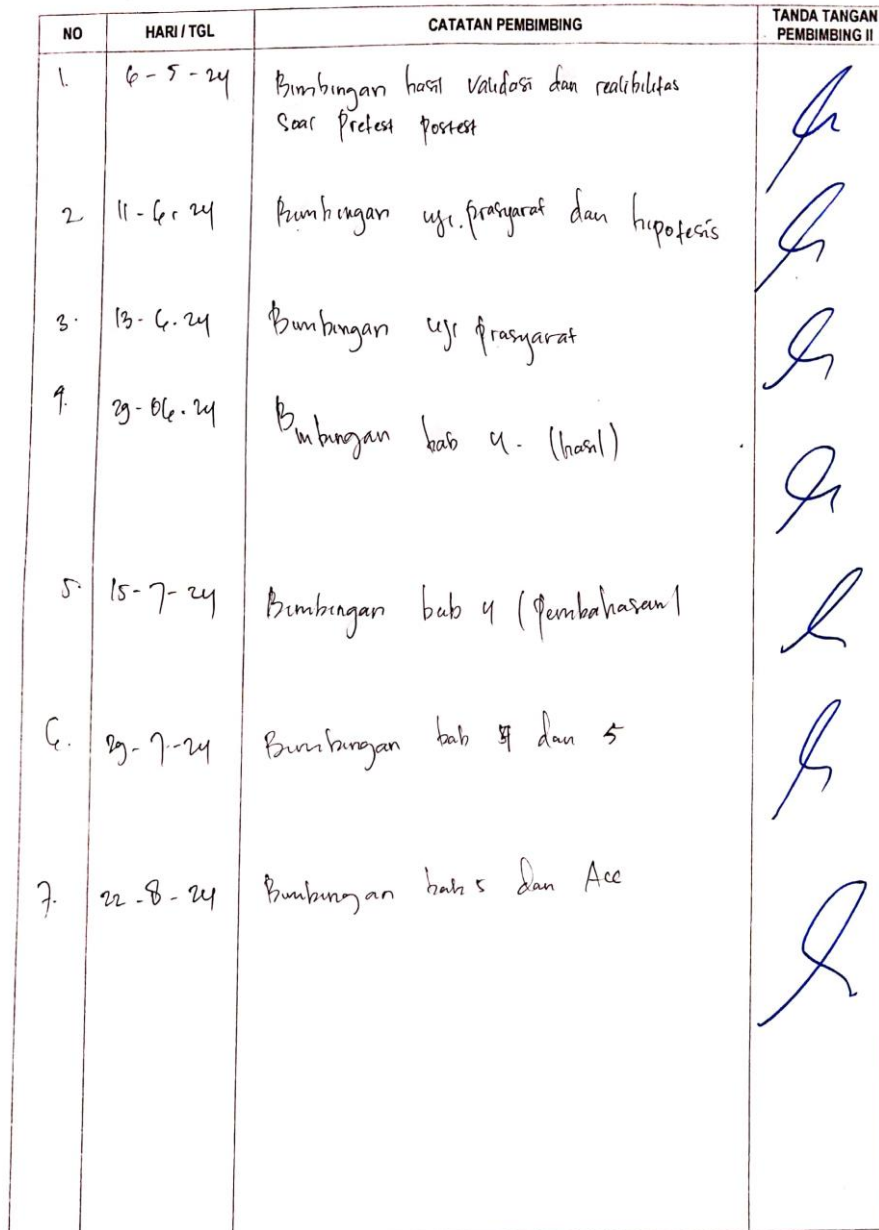 NO HARI / TGL CATATAN PEMBIMBING TANDA TANGAN PEMBIMBING II
1. 6-5-24 Bimbingan hasil validasi dan realibilitas
Soal Pretest Postest
2 11-6-24 Bimbingan uji prasyarat dan hipotesis
3. 13-6-24 Bimbingan uji prasyarat
4. 29-06-24 Bimbingan bab 4. (hasil)
5. 15-7-24 Bimbingan bab 4 (Pembahasan)
6. 29-7-24 Bimbingan bab 4 dan 5
7. 22-8-24 Bimbingan bab 5 dan Acc